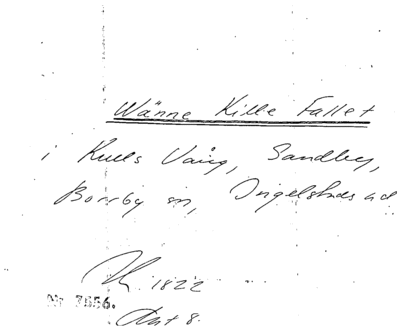 Wänne Kille Fallet
i Kulls Vång, Sandby,
Borrby sn, Ingelstads hd
1822
Nr 7656.
Ant 8.